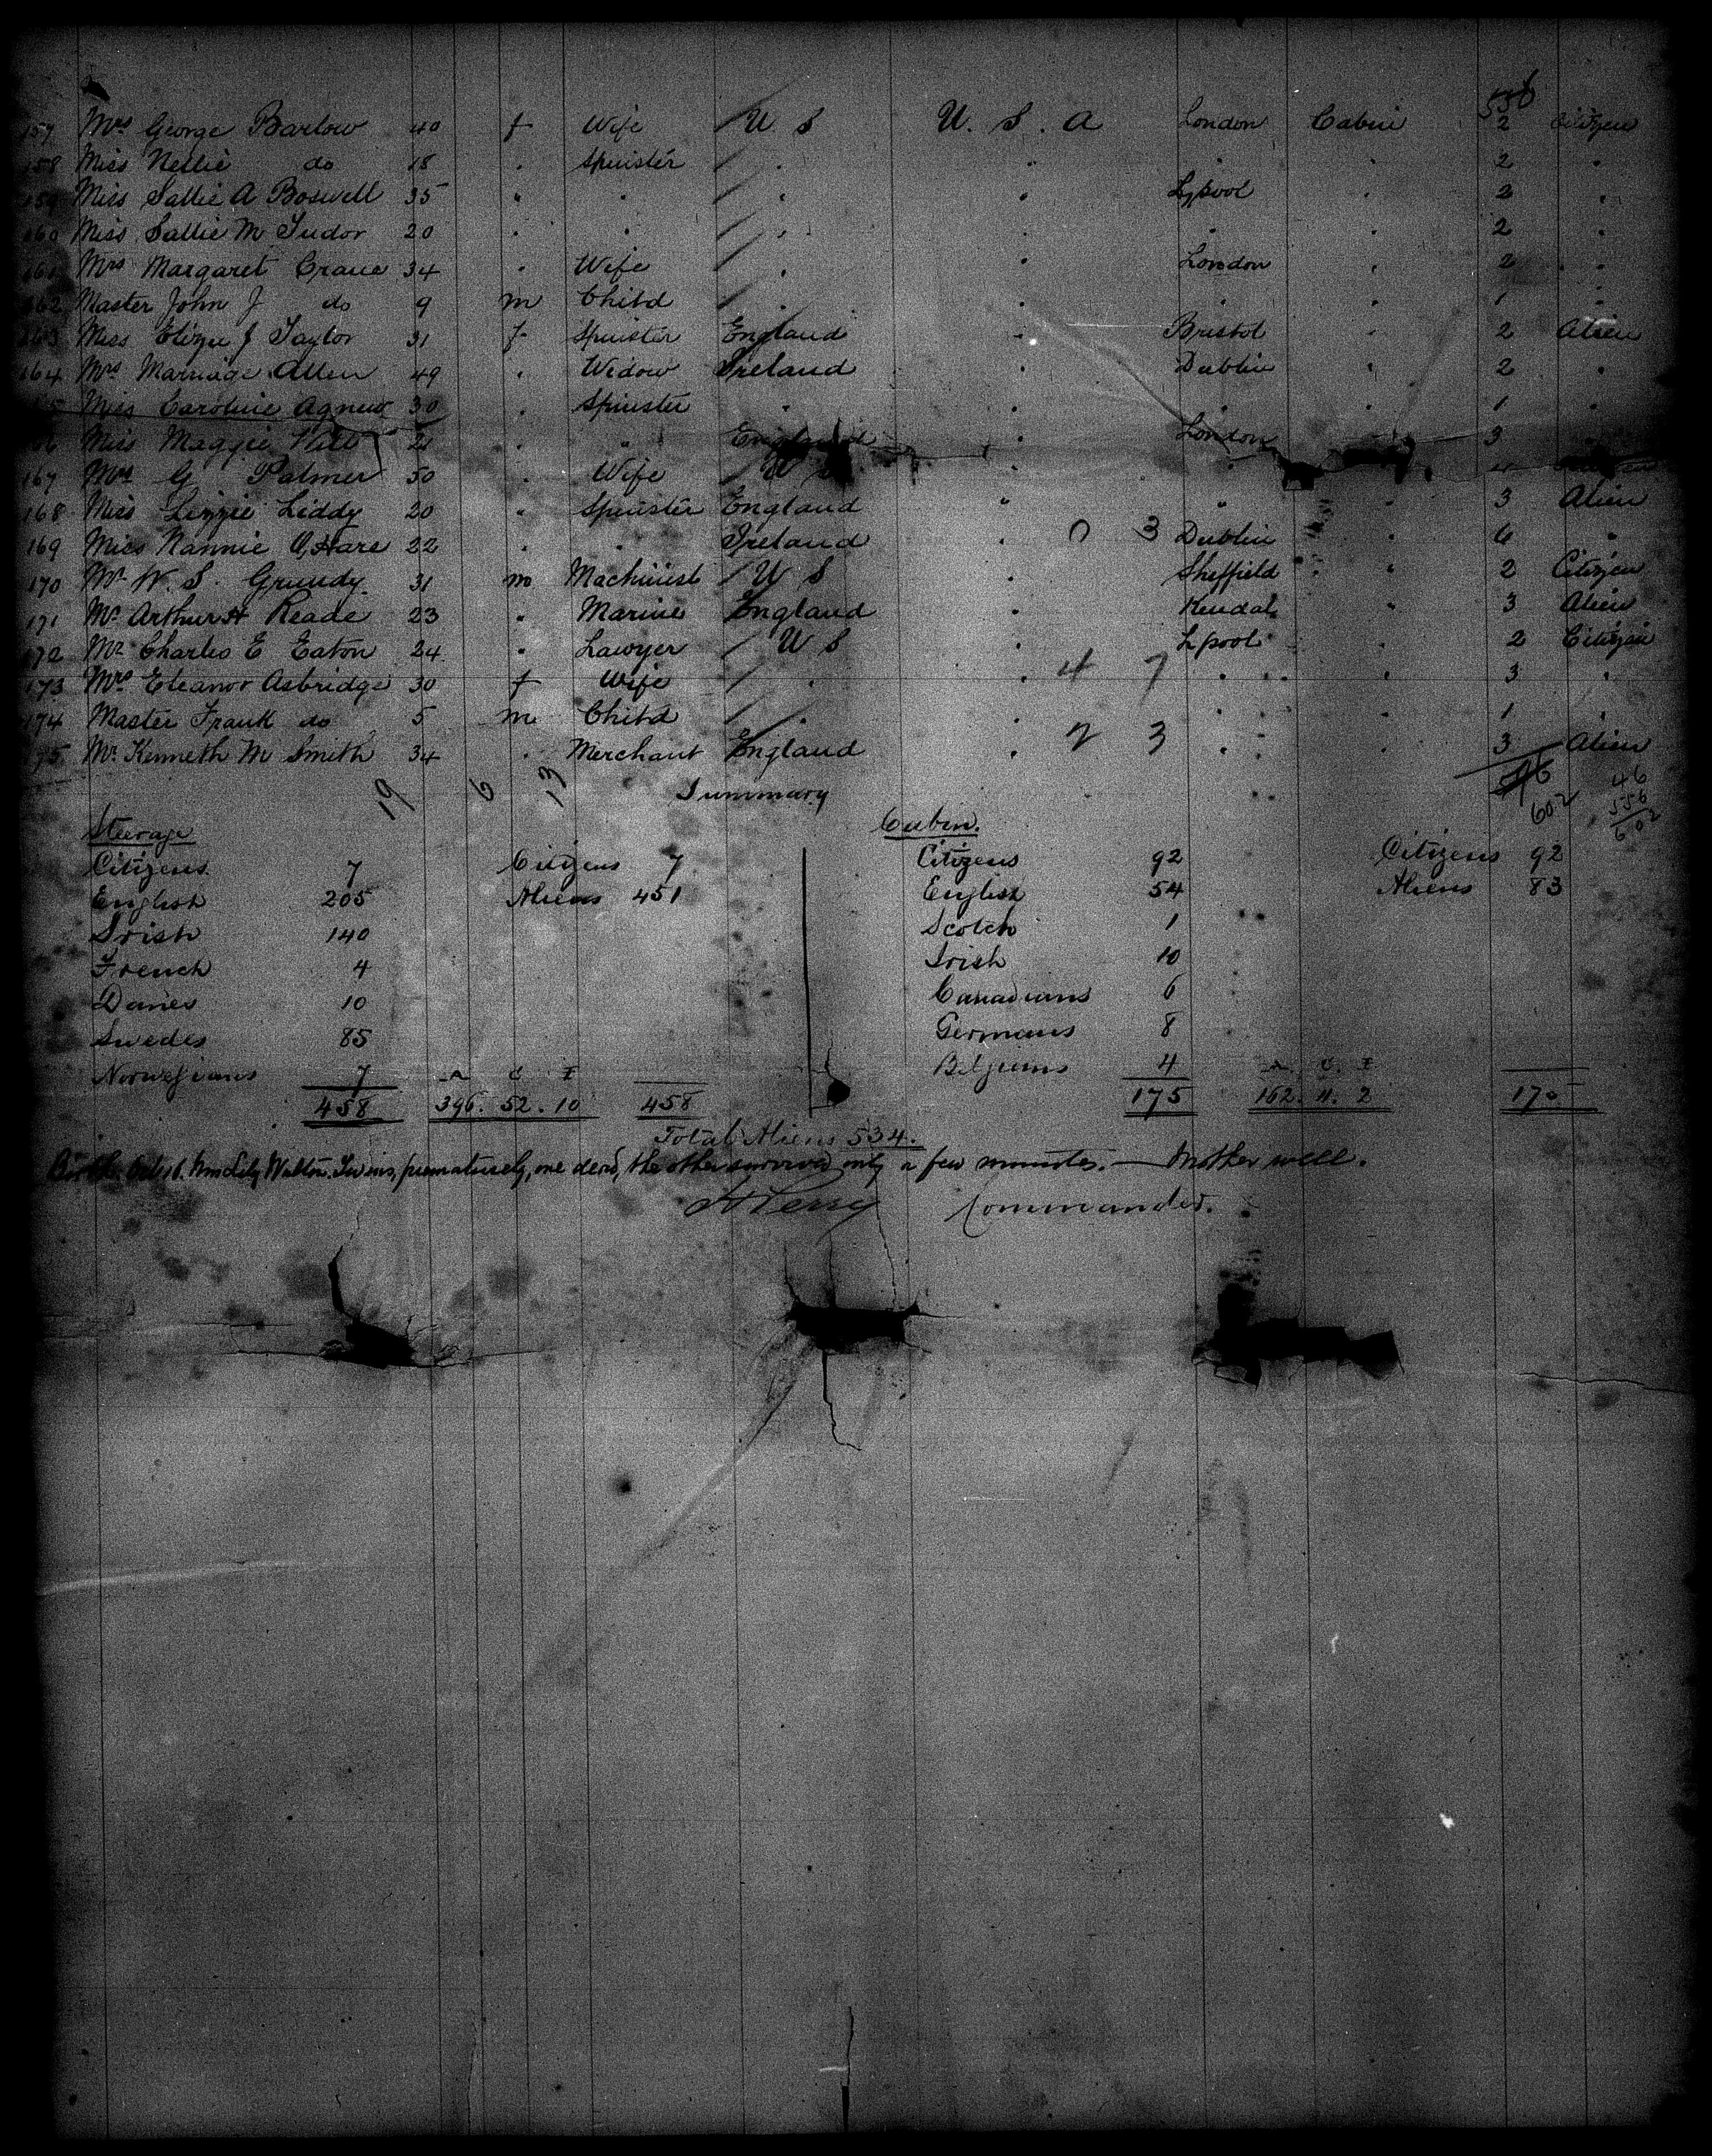 556
157 Mrs George Barlow 40 f Wife U S U. S. A London Cabin 2 Citizen
158 Miss Nellie do 18 " Spinster " " " " 2 "
159 Miss Sallie A Boswell 35 " " " " L,pool " 2 "
160 Miss Sallie M Tudor 20 " " " " " " 2 "
161 Mrs Margaret Crane 34 " Wife " " London " 2 "
162 Master John J do 9 m Child " " " " 1 "
163 Miss Eliza J Taylor 31 f Spinster England " Bristol " 2 Alien
164 Mrs Marriage Allen 49 " Widow Ireland " Dublin " 2 "
165 Miss Caroline Agnew 30 " Spinster " " " " 1 "
166 Miss Maggie 21 " " England " London 3 "
167 Mrs G Palmer 50 " Wife U S " 4
168 Miss Lizzie Liddy 20 " Spinster England " " " 3 Alien
169 Miss Nannie O,Hare 22 " " Ireland " 0 3 Dublin " 6 "
170 Mr W. S. Grundy 31 m Machinist U S " Sheffield " 2 Citizen
171 Mr Arthur H Reade 23 " Marine England " Kendal " 3 Alien
172 Mr Charles E Eaton 24 " Lawyer U S " L pool " 2 Citizen
173 Mrs Eleanor Asbridge 30 f Wife " " 4 7 " " 3 "
174 Master Frank do 5 m Child " " " " 1 "
175 Mr Kenneth M Smith 34 " Merchant England " 2 3 " " 3 Alien
19 6 13 Summary 46 46
602 556
602
Steerage Cabin.
Citizens 7 Citizens 7 Citizens 92 Citizens 92
English 205 Aliens 451 English 54 Aliens 83
Irish 140 Scotch 1
French 4 Irish 10
Danes 10 Canadians 6
Swedes 85 Germans 8
Norwegians 7 A C I Belgiums 4 A. C. I
458 396. 52. 10 458 175 162. 11. 2 175
Total Aliens 534.
Birth. Oct 16. Lily Walton. Twins, prematurely, one dead, the other survived only a few minutes. — Mother well.
H Perry Commander.